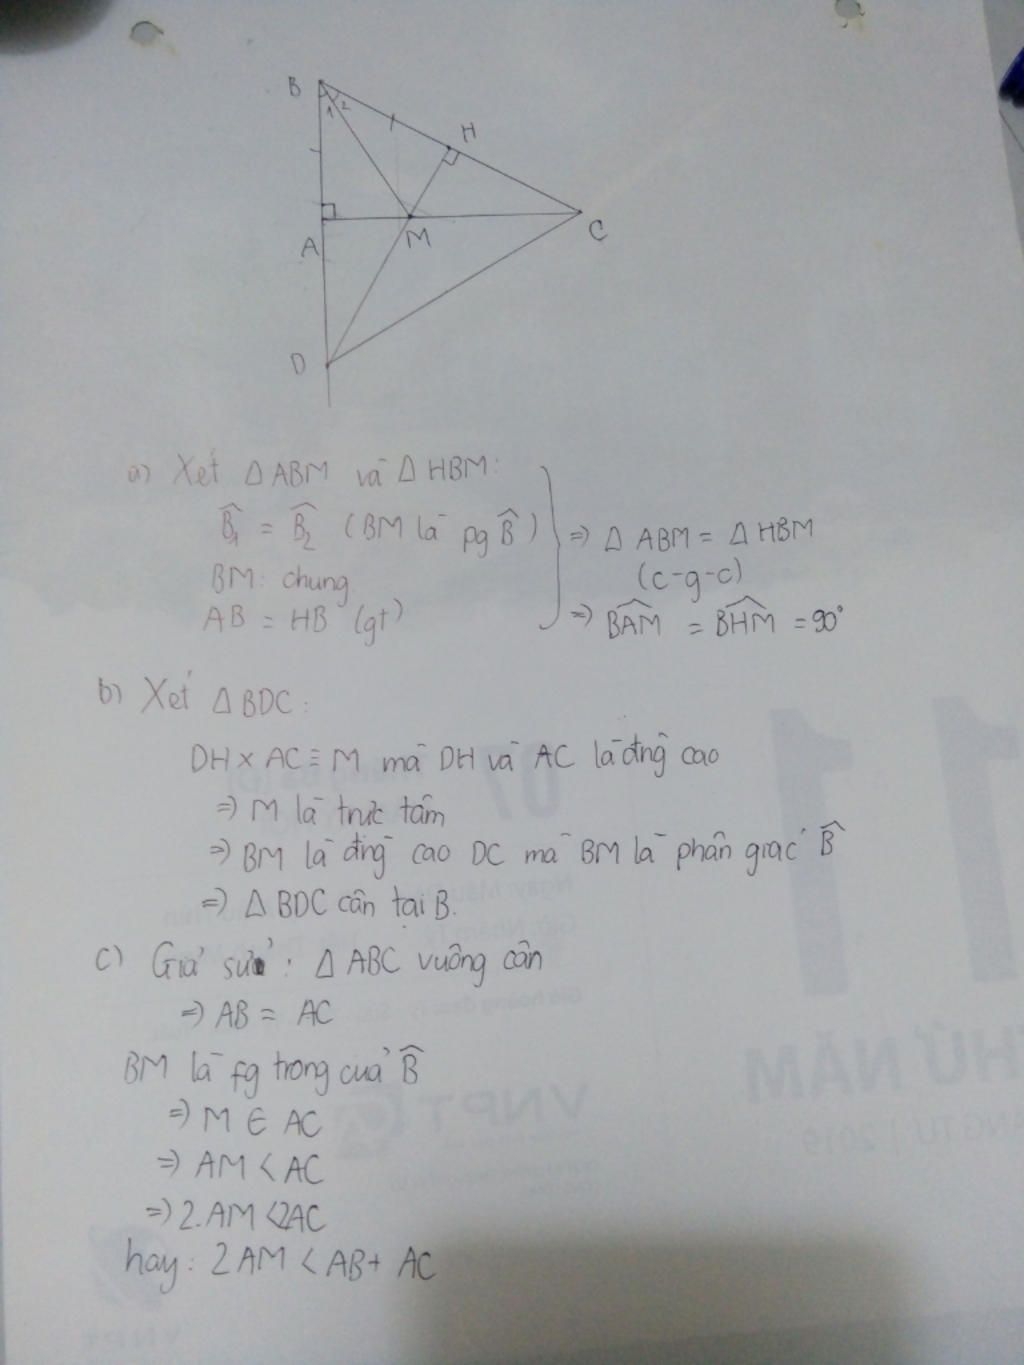 B
1
2
H
A
M
C
D
a) Xét Δ ABM và Δ HBM:
B̂₁ = B̂₂ (BM là pg B̂)
BM: chung
AB = HB (gt)
⇒ Δ ABM = Δ HBM
(c-g-c)
⇒ BAM̂ = BHM̂ = 90°
b) Xét Δ BDC:
DH x AC ≡ M mà DH và AC là đng cao
⇒ M là trực tâm
⇒ BM là đng cao DC mà BM là phân giác B̂
⇒ Δ BDC cân tại B.
c) Giả sử: Δ ABC vuông cân
⇒ AB = AC
BM là fg trong của B̂
⇒ M ∈ AC
⇒ AM < AC
⇒ 2.AM < 2AC
hay: 2AM < AB + AC
07
11
THỨ NĂM
VNPT
2019